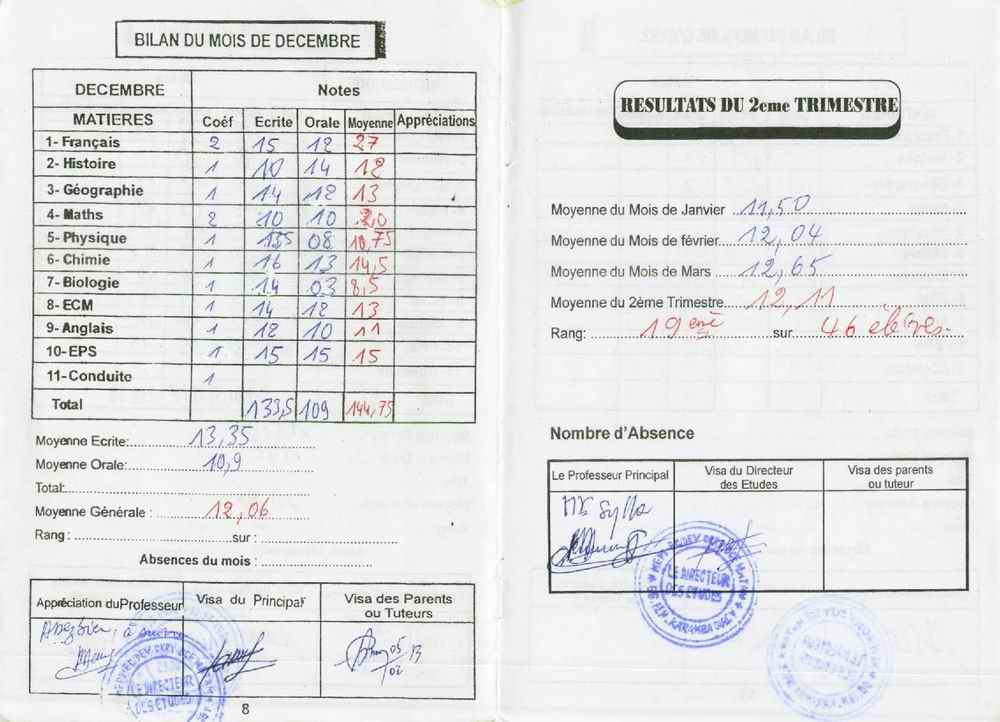 BILAN DU MOIS DE DECEMBRE
DECEMBRE Notes
MATIERES Coéf Ecrite Orale Moyenne Appréciations
1- Français 2 15 12 27
2- Histoire 1 10 14 12
3- Géographie 1 14 12 13
4- Maths 2 10 10 20
5- Physique 1 135 08 10,75
6- Chimie 1 16 13 14,5
7- Biologie 1 14 03 8,5
8- ECM 1 14 12 13
9- Anglais 1 12 10 11
10- EPS 1 15 15 15
11- Conduite 1
Total 133,5 109 144,75
Moyenne Ecrite: 13,35
Moyenne Orale: 10,9
Total:
Moyenne Générale : 12,06
Rang : sur :
Absences du mois :
Appréciation du Professeur Visa du Principal Visa des Parents ou Tuteurs
05
02 13
LE DIRECTEUR
DES ETUDES
8
RESULTATS DU 2eme TRIMESTRE
Moyenne du Mois de Janvier 11,50
Moyenne du Mois de février 12,04
Moyenne du Mois de Mars 12,65
Moyenne du 2ème Trimestre 12,11
Rang: 19eme sur 46 élèves
Nombre d'Absence
Le Professeur Principal Visa du Directeur des Etudes Visa des parents ou tuteur
Mr Sylla
LE DIRECTEUR
DES ETUDES